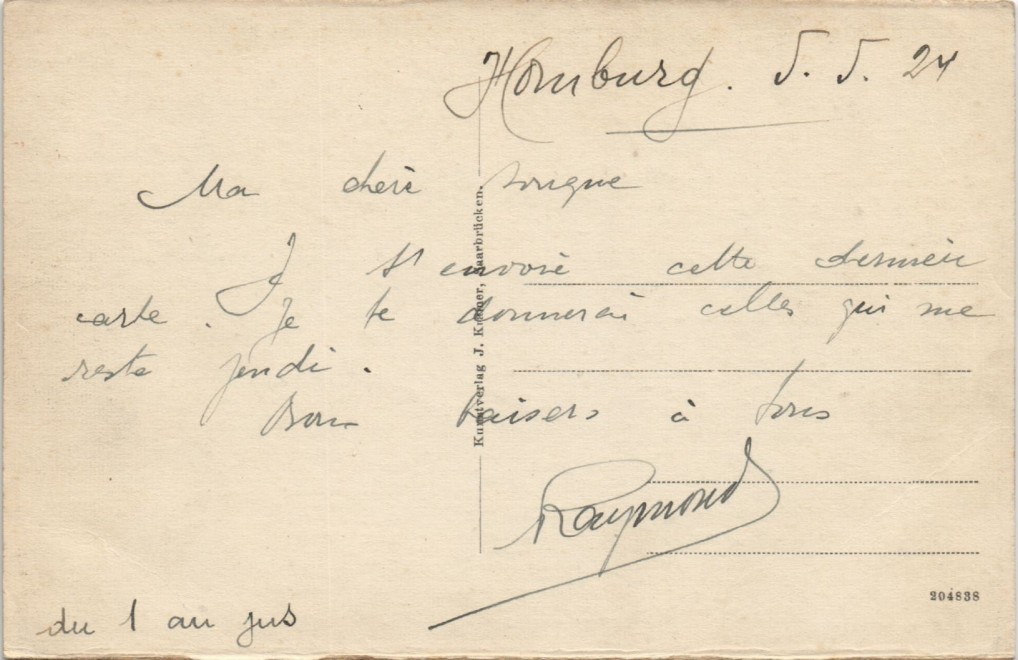 Homburg. 5. 5. 24
Ma chère
Je t'envoie cette dernière
carte. Je te donnerai celles qui me
reste jeudi.
Bons baisers à tous
Raymond
du 1 au jus
Kunstverlag J. Saarbrücken.
204838